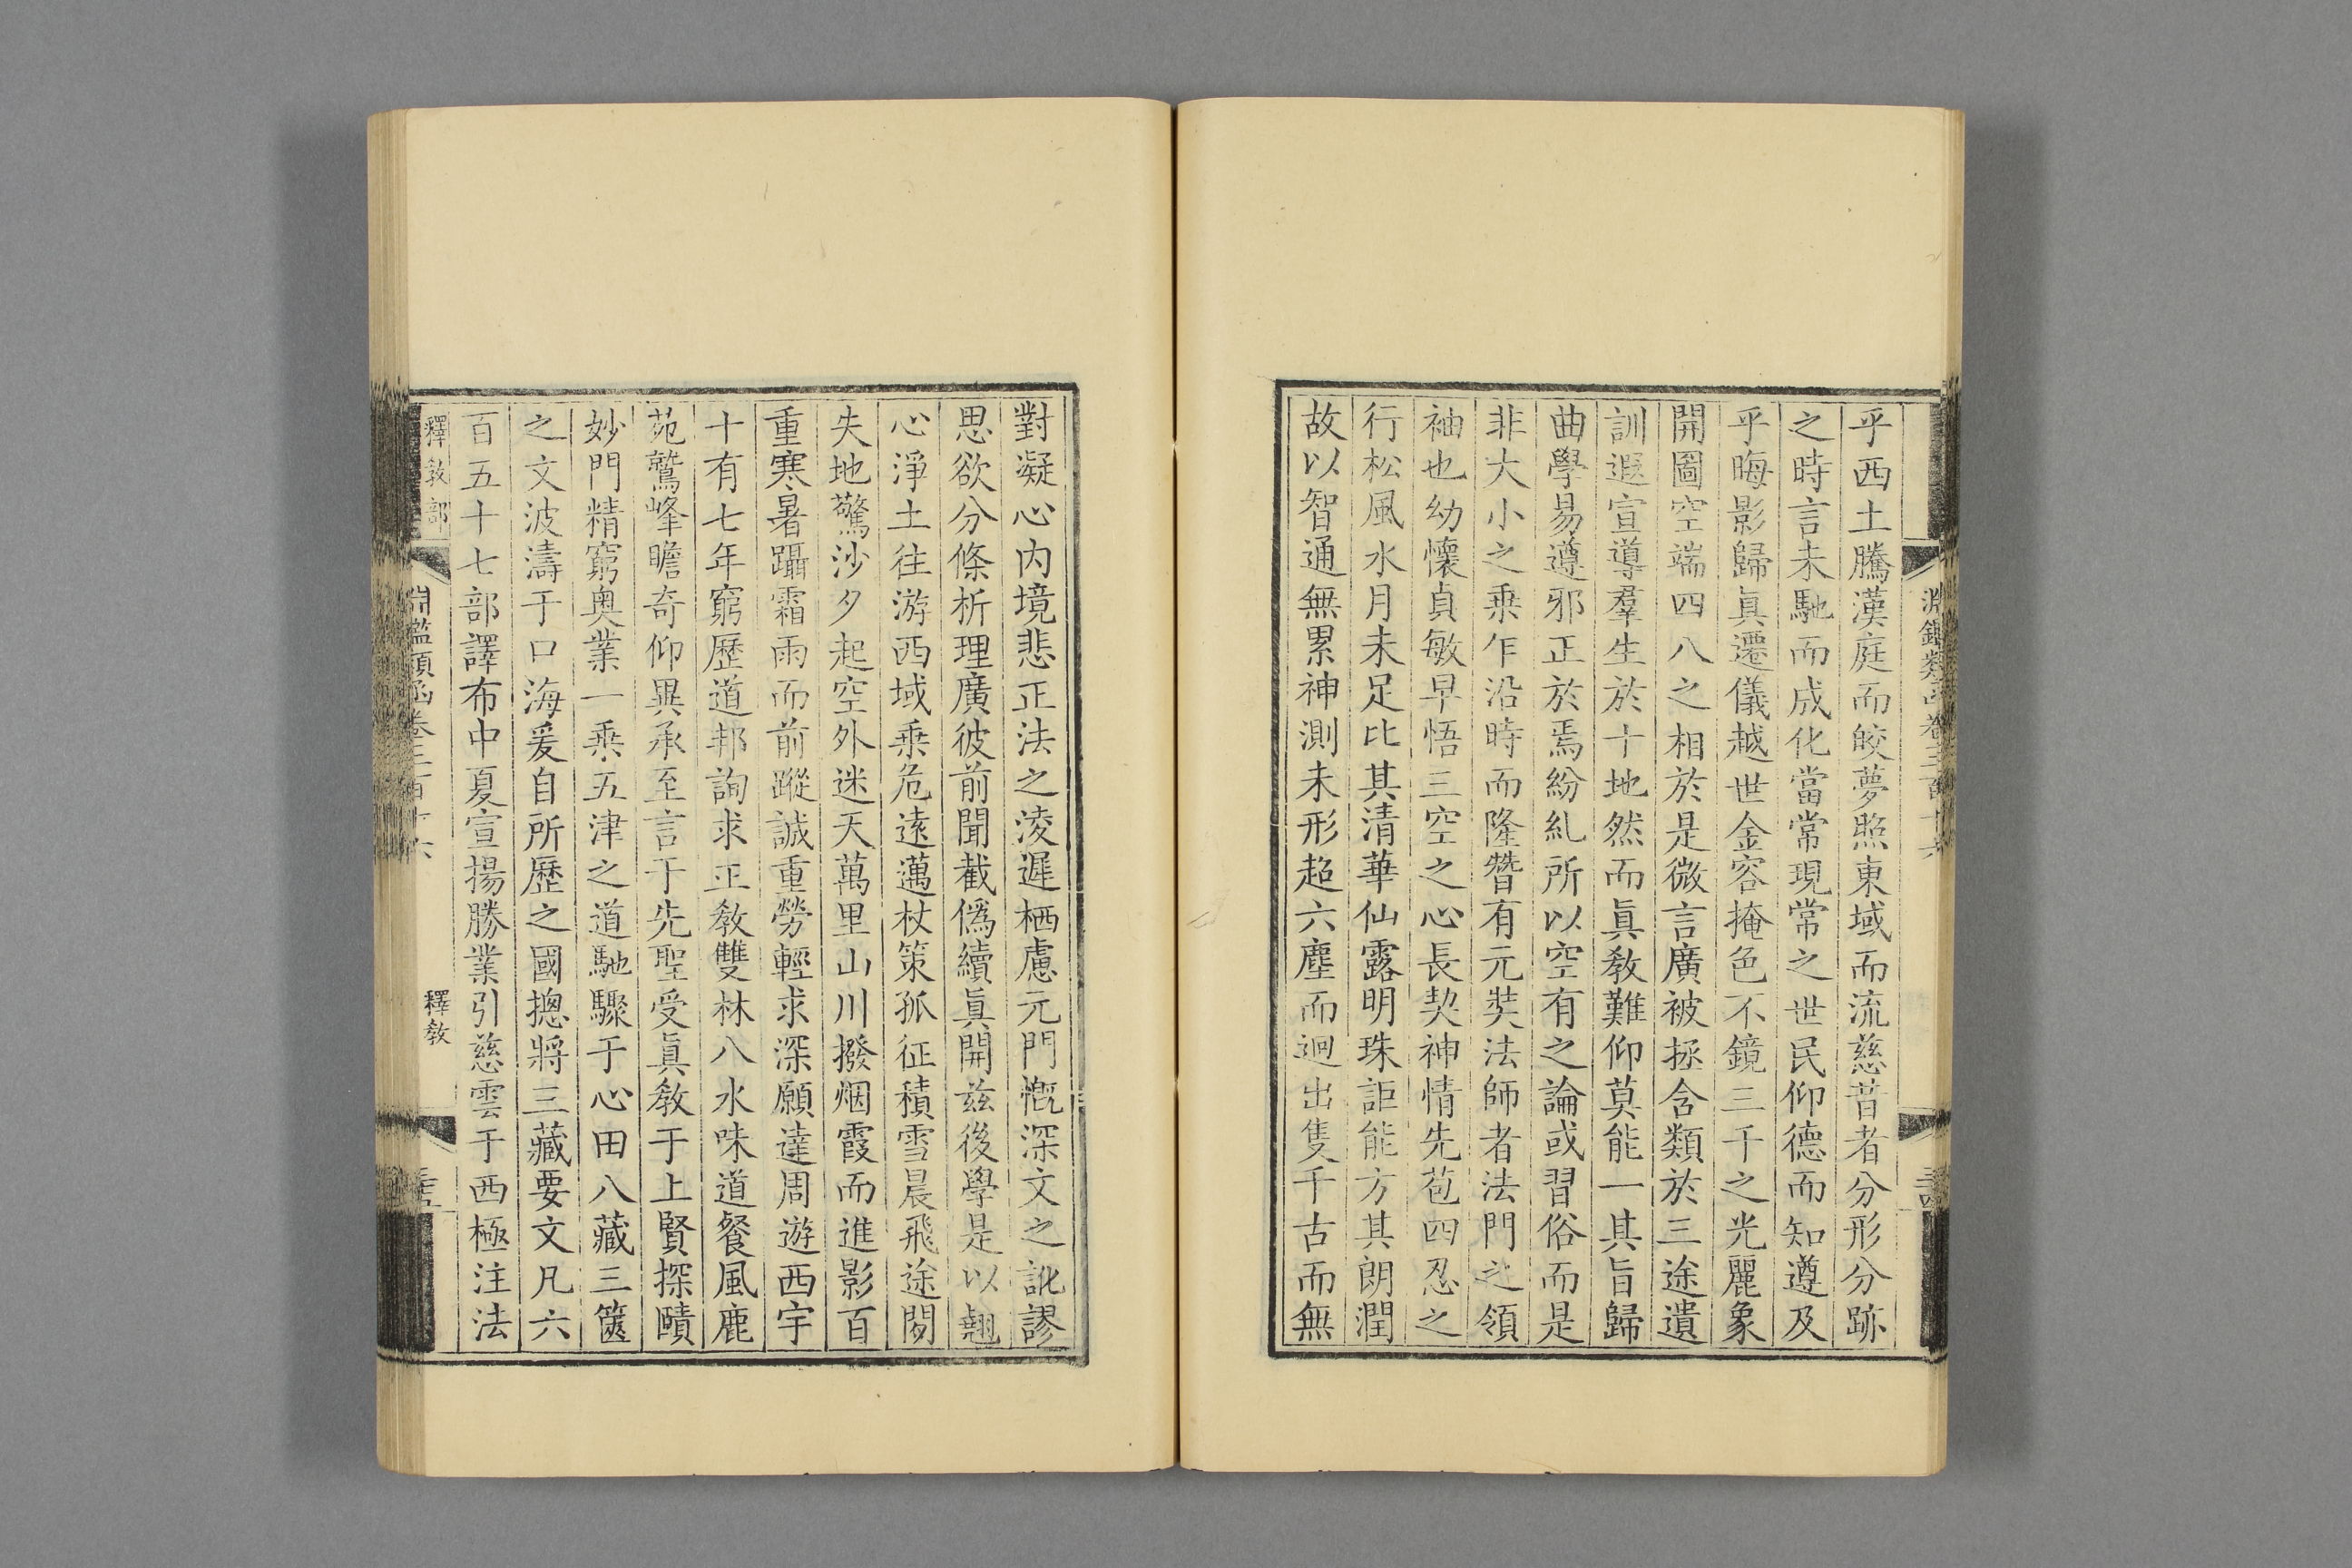 淵鑑類函卷三百十六
乎西土騰漢庭而皎夢照東域而流慈昔者分形分跡
之時言未馳而成化當常現常之世民仰德而知遵及
乎晦影歸眞遷儀越世金容掩色不鏡三千之光麗象
開圖空端四八之相於是微言廣被拯含類於三途遺
訓遐宣導羣生於十地然而眞敎難仰莫能一其旨歸
曲學易遵邪正於焉紛糺所以空有之論或習俗而是
非大小之乘乍沿時而隆朁有元奘法師者法門之領
袖也幼懷貞敏早悟三空之心長契神情先苞四忍之
行松風水月未足比其清華仙露明珠詎能方其朗潤
故以智通無累神測未形超六塵而迥出隻千古而無
對凝心内境悲正法之淩遲栖慮元門慨深文之訛謬
思欲分條析理廣彼前聞截僞續眞開玆後學是以翹
心淨土往游西域乘危遠邁杖策孤征積雪晨飛途閒
失地驚沙夕起空外迷天萬里山川撥烟霞而進影百
重寒暑躡霜雨而前蹤誠重勞輕求深願達周遊西宇
十有七年窮歷道邦詢求正敎雙林八水味道餐風鹿
苑鷲峰瞻奇仰異承至言于先聖受眞敎于上賢探賾
妙門精窮奥業一乘五津之道馳驟于心田八藏三篋
之文波濤于口海爰自所歷之國摠將三藏要文凡六
百五十七部譯布中夏宣揚勝業引慈雲于西極注法
釋敎部
淵鑑類函卷三百十六
釋敎